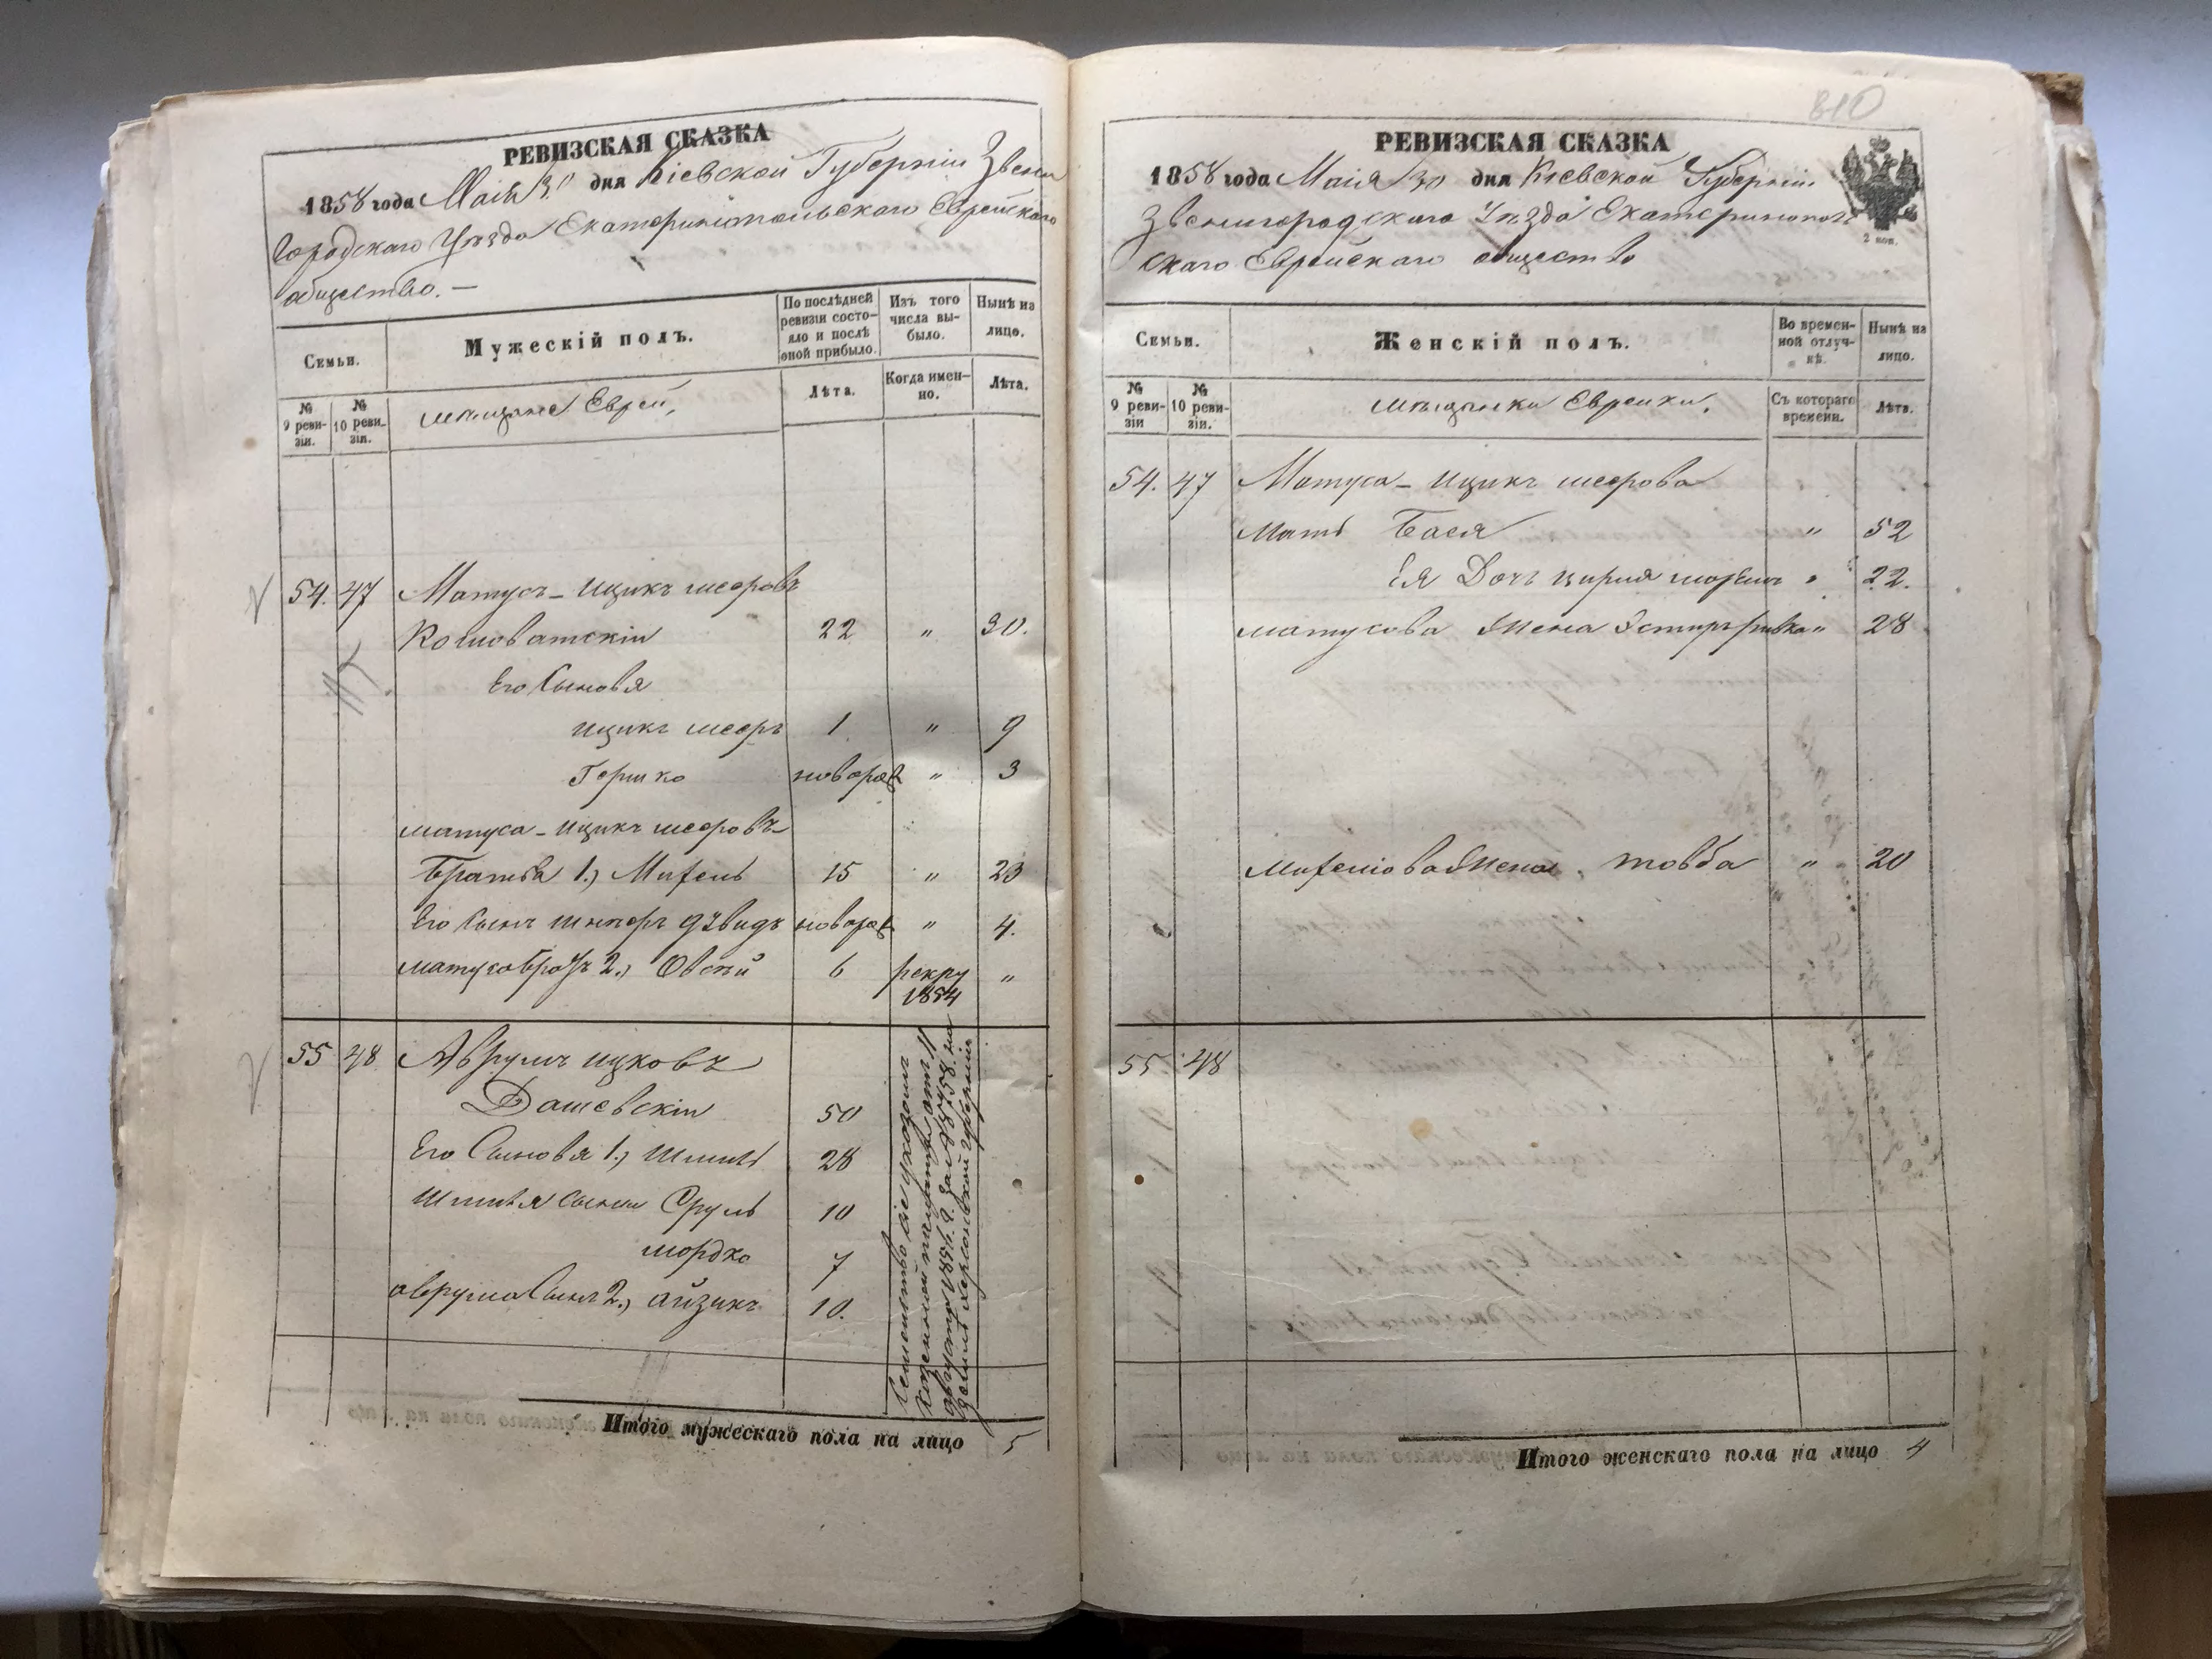 РЕВИЗСКАЯ СКАЗКА
1858 года Маія 30 дня Кіевской Губерніи Звени
городскаго Уѣзда Екатеринопольскаго Еврейскаго
общество. —
Семьи.
Мужескій полъ.
По послѣдней ревизіи состо-
яло и послѣ оной прибыло.
Изъ того числа вы-
было.
Нынѣ на лицо.
№ 9 реви-
зіи.
№ 10 реви-
зіи.
мѣщане Евреи,
Лѣта.
Когда имен-
но.
Лѣта.
54. 47 Матусъ - Ицикъ мееровъ
Кошоватскій 22 " 30.
Его Сыновья
ицикъ мееръ 1 " 9
Гершко новорож " 3
матуса - Ицикъ мееровъ
Братья 1.) 15 " 23
Его Сынъ новорож " 4.
2.) Овсѣй 6 рекру 1854 "
55 48 Аврумъ ицковъ
Дашевскій 50
Его Сыновья 1.) Шмиль 28
Шмиля сыны Сруль 10
мордко 7
аврума Сынъ 2.) айзикъ 10.
Семейство сіе
казенной палаты отъ 11
августа 185 г. за №
херсонской губерніи
Итого мужескаго пола на лицо 5
810
РЕВИЗСКАЯ СКАЗКА
1858 года Маія 30 дня Кіевской Губерніи
Звенигородскаго Уѣзда Екатеринополь
скаго Еврейскаго общество
2 коп.
Семьи.
Женскій полъ.
Во времен-
ной отлуч-
кѣ.
Нынѣ на лицо.
№ 9 реви-
зіи
№ 10 реви-
зіи.
мѣщанки Еврейки.
Съ котораго времени.
Лѣта.
54. 47 Матуса - Ицикъ меерова
Мать Бася " 52
Ея Дочь " 22.
матусова Жена Эстеръ ривка " 28
Жена товба " 20
55 48
Итого женскаго пола на лицо 4